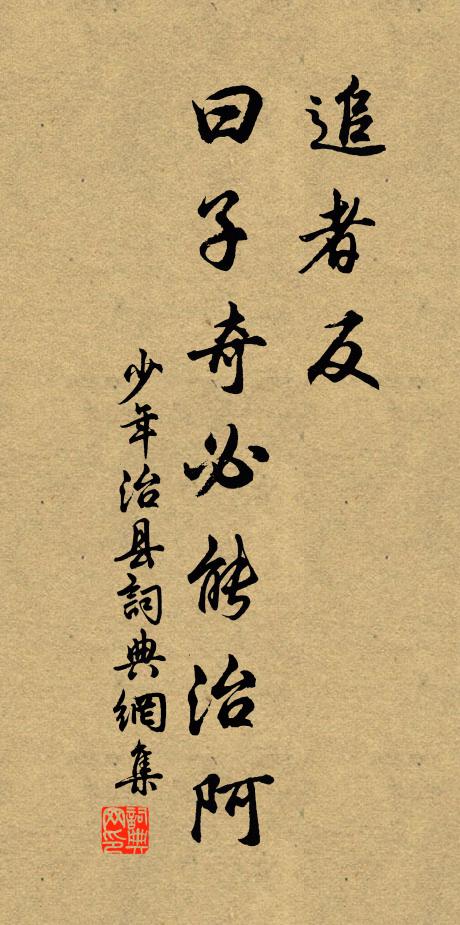 追者反
曰子奇必能治阿
少年治县詞典網集
詞典网印